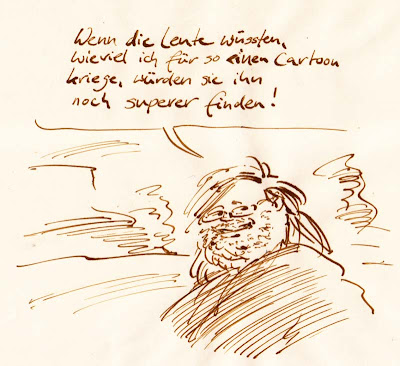 Wenn die Leute wüssten,
wieviel ich für so einen Cartoon
kriege, würden sie ihn
noch superer finden!